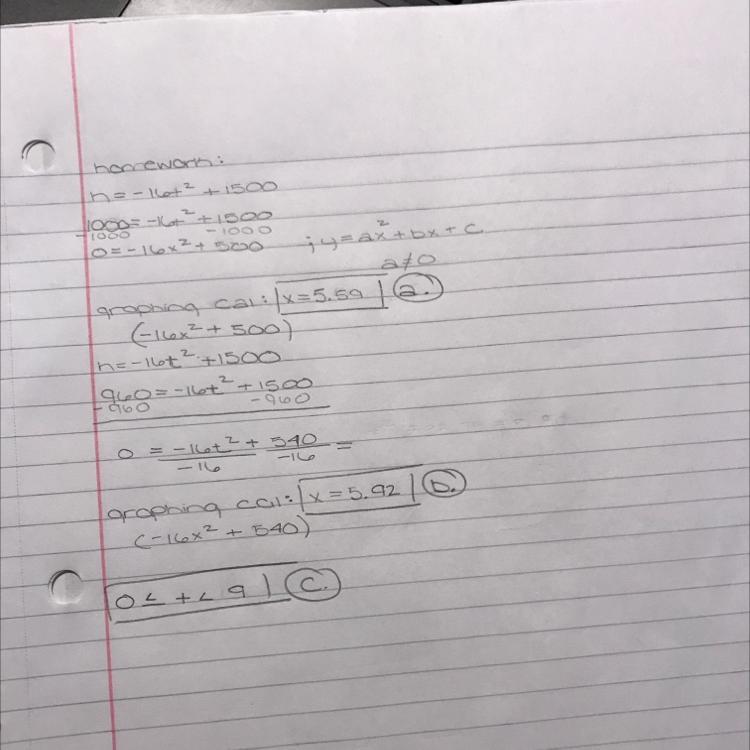 homework:
h = -16t² + 1500
1000 = -16t² + 1500
-1000 -1000
0 = -16x² + 500 ; y = ax² + bx + c
a ≠ 0
graphing cal: x = 5.59 a.
(-16x² + 500)
h = -16t² + 1500
960 = -16t² + 1500
-960 -960
0 = -16t² + 540 =
-16 -16
graphing cal: x = 5.92 b.
(-16x² + 540)
0 ≤ t < 9 c.